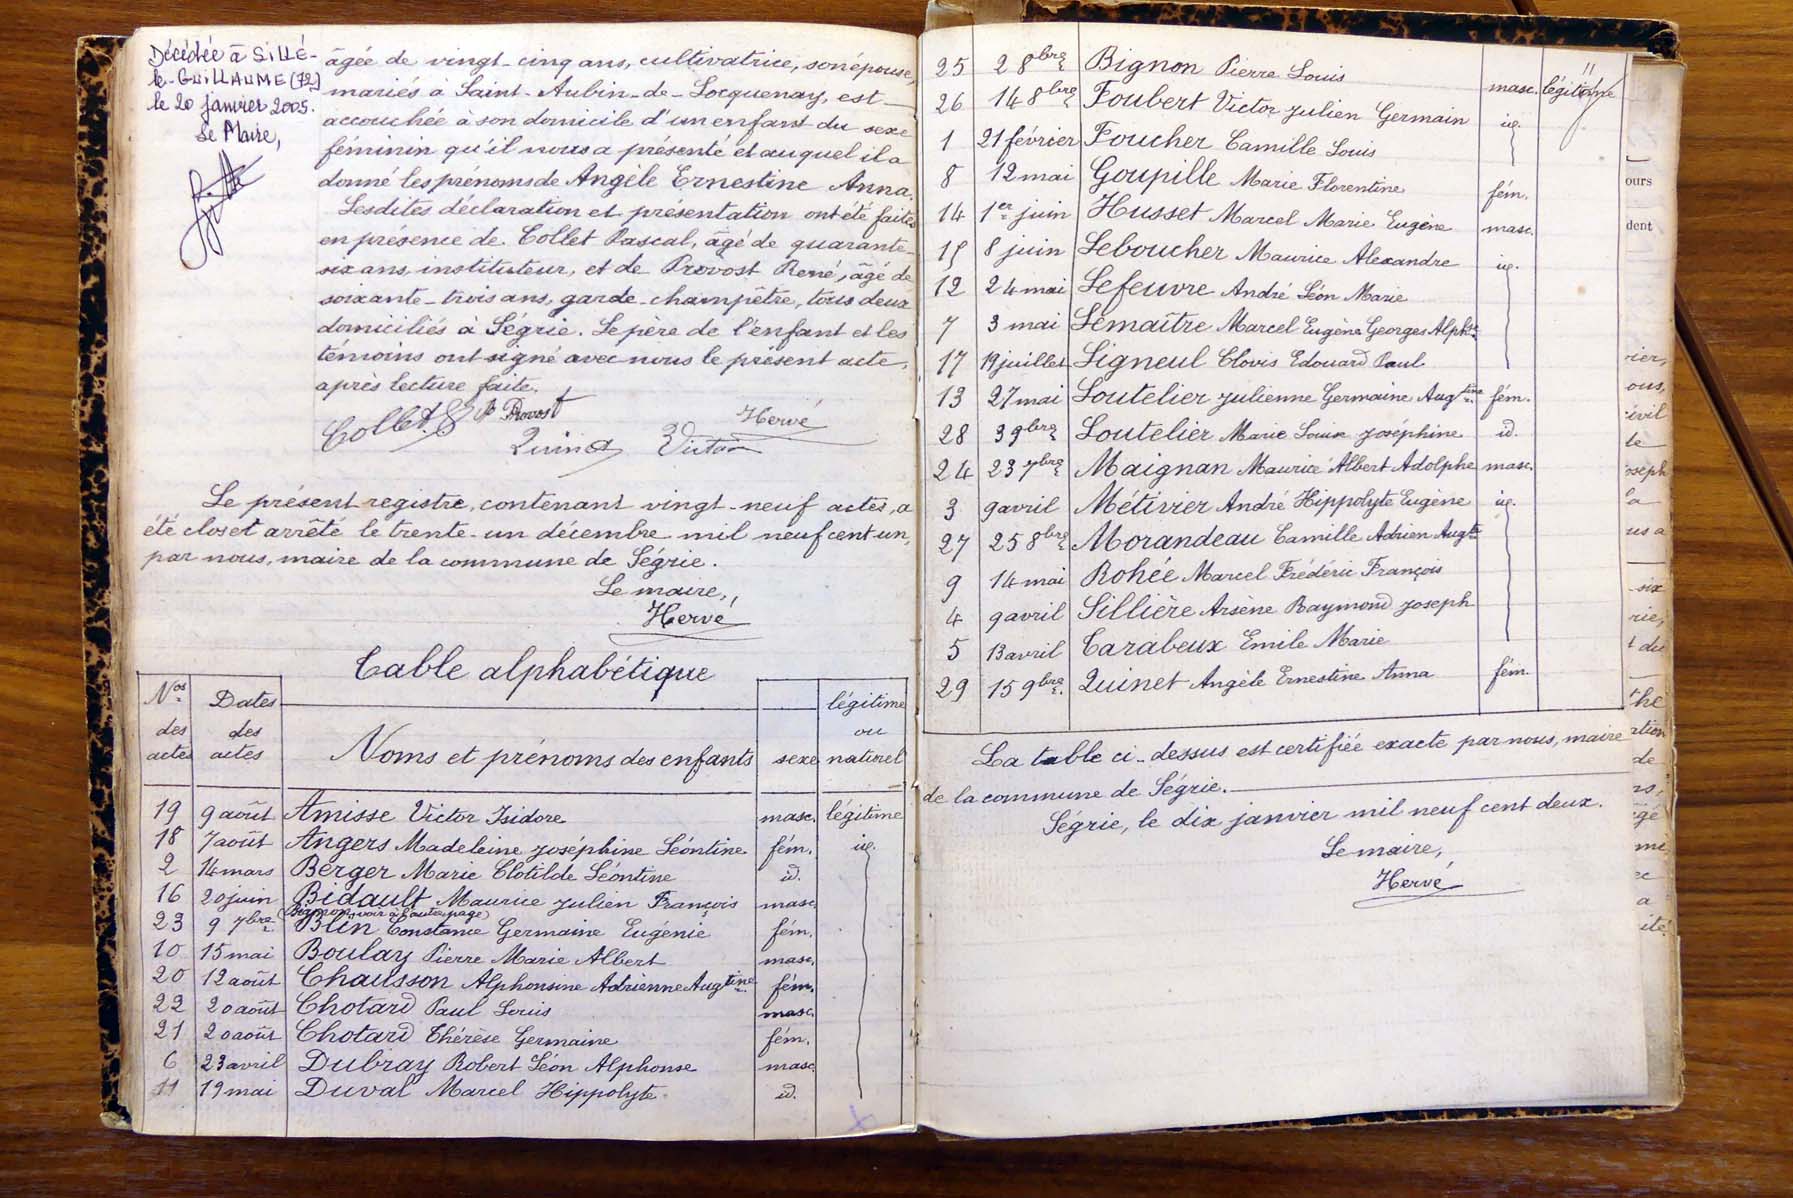 Décédée à SILLÉ-
le-GUILLAUME (72)
le 20 janvier 2005.
Le Maire,
âgée de vingt-cinq ans, cultivatrice, son épouse,
mariés à Saint-Aubin-de-Locquenay, est
accouchée à son domicile d'un enfant du sexe
féminin qu'il nous a présenté et auquel il a
donné les prénoms de Angèle Ernestine Anna.
Lesdites déclaration et présentation ont été faites
en présence de Collet Pascal, âgé de quarante-
six ans, instituteur, et de Provost René, âgé de
soixante-trois ans, garde-champêtre, tous deux
domiciliés à Ségrie. Le père de l'enfant et les
témoins ont signé avec nous le présent acte,
après lecture faite.
Collet Provost Hervé
Quinet Victor
Le présent registre, contenant vingt-neuf actes, a
été clos et arrêté le trente-un décembre mil neuf cent un,
par nous, maire de la commune de Ségrie.
Le maire,
Hervé
Table alphabétique
Nos des actes Dates des actes Noms et prénoms des enfants sexe légitime ou naturel
19 9 août Amisse Victor Isidore masc. légitime
18 7 août Angers Madeleine Joséphine Léontine fém. id.
2 14 mars Berger Marie Clotilde Léontine id.
16 20 juin Bidault Maurice Julien François masc.
(Bignon, voir à l'autre page)
23 9 7bre Blin Constance Germaine Eugénie fém.
10 15 mai Boulay Pierre Marie Albert masc.
20 12 août Chausson Alphonsine Adrienne Augtine fém.
22 20 août Chotard Paul Louis masc.
21 20 août Chotard Thérèse Germaine fém.
6 23 avril Dubray Robert Léon Alphonse masc.
11 19 mai Duval Marcel Hippolyte id.
25 2 8bre Bignon Pierre Louis masc. légitime
26 14 8bre Foubert Victor Julien Germain id.
1 21 février Foucher Camille Louis
8 12 mai Goupille Marie Florentine fém.
14 1er juin Husset Marcel Marie Eugène masc.
15 8 juin Leboucher Maurice Alexandre id.
12 24 mai Lefeuvre André Léon Marie
7 3 mai Lemaître Marcel Eugène Georges Alphse
17 19 juillet Ligneul Clovis Edouard Paul
13 27 mai Loutelier Julienne Germaine Augtine fém.
28 3 9bre Loutelier Marie Louise Joséphine id.
24 23 7bre Maignan Maurice Albert Adolphe masc.
3 9 avril Métivier André Hippolyte Eugène id.
27 25 8bre Morandeau Camille Adrien Augte
9 14 mai Rohée Marcel Frédéric François
4 9 avril Sillière Arsène Raymond Joseph
5 13 avril Tarabeux Emile Marie
29 15 9bre Quinet Angèle Ernestine Anna fém.
La table ci-dessus est certifiée exacte par nous, maire
de la commune de Ségrie.
Ségrie, le dix janvier mil neuf cent deux.
Le maire,
Hervé
ours
dent